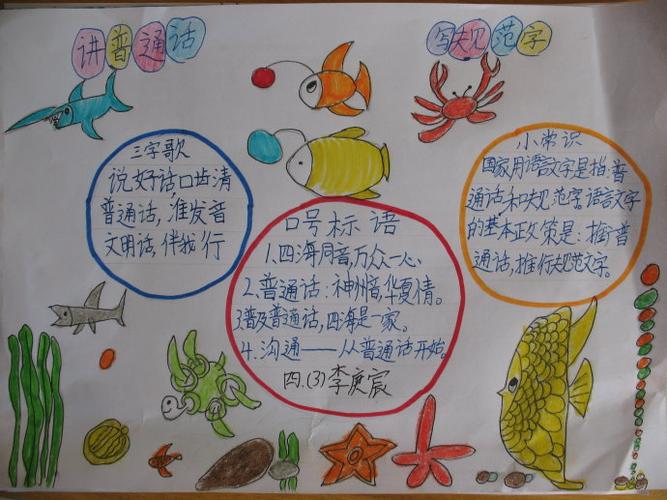 讲普通话
写规范字
三字歌
说好话口齿清
普通话，准发音
文明话，伴我行
口号标语
1.四海同音，万众一心、
2.普通话：神州音，华夏情。
3.普及普通话，四海是一家。
4.沟通——从普通话开始。
四.(3)李庚宸
小常识
国家用语言文字是指：普
通话和规范字。语言文字
的基本政策是：推普
通话，推行规范文字。